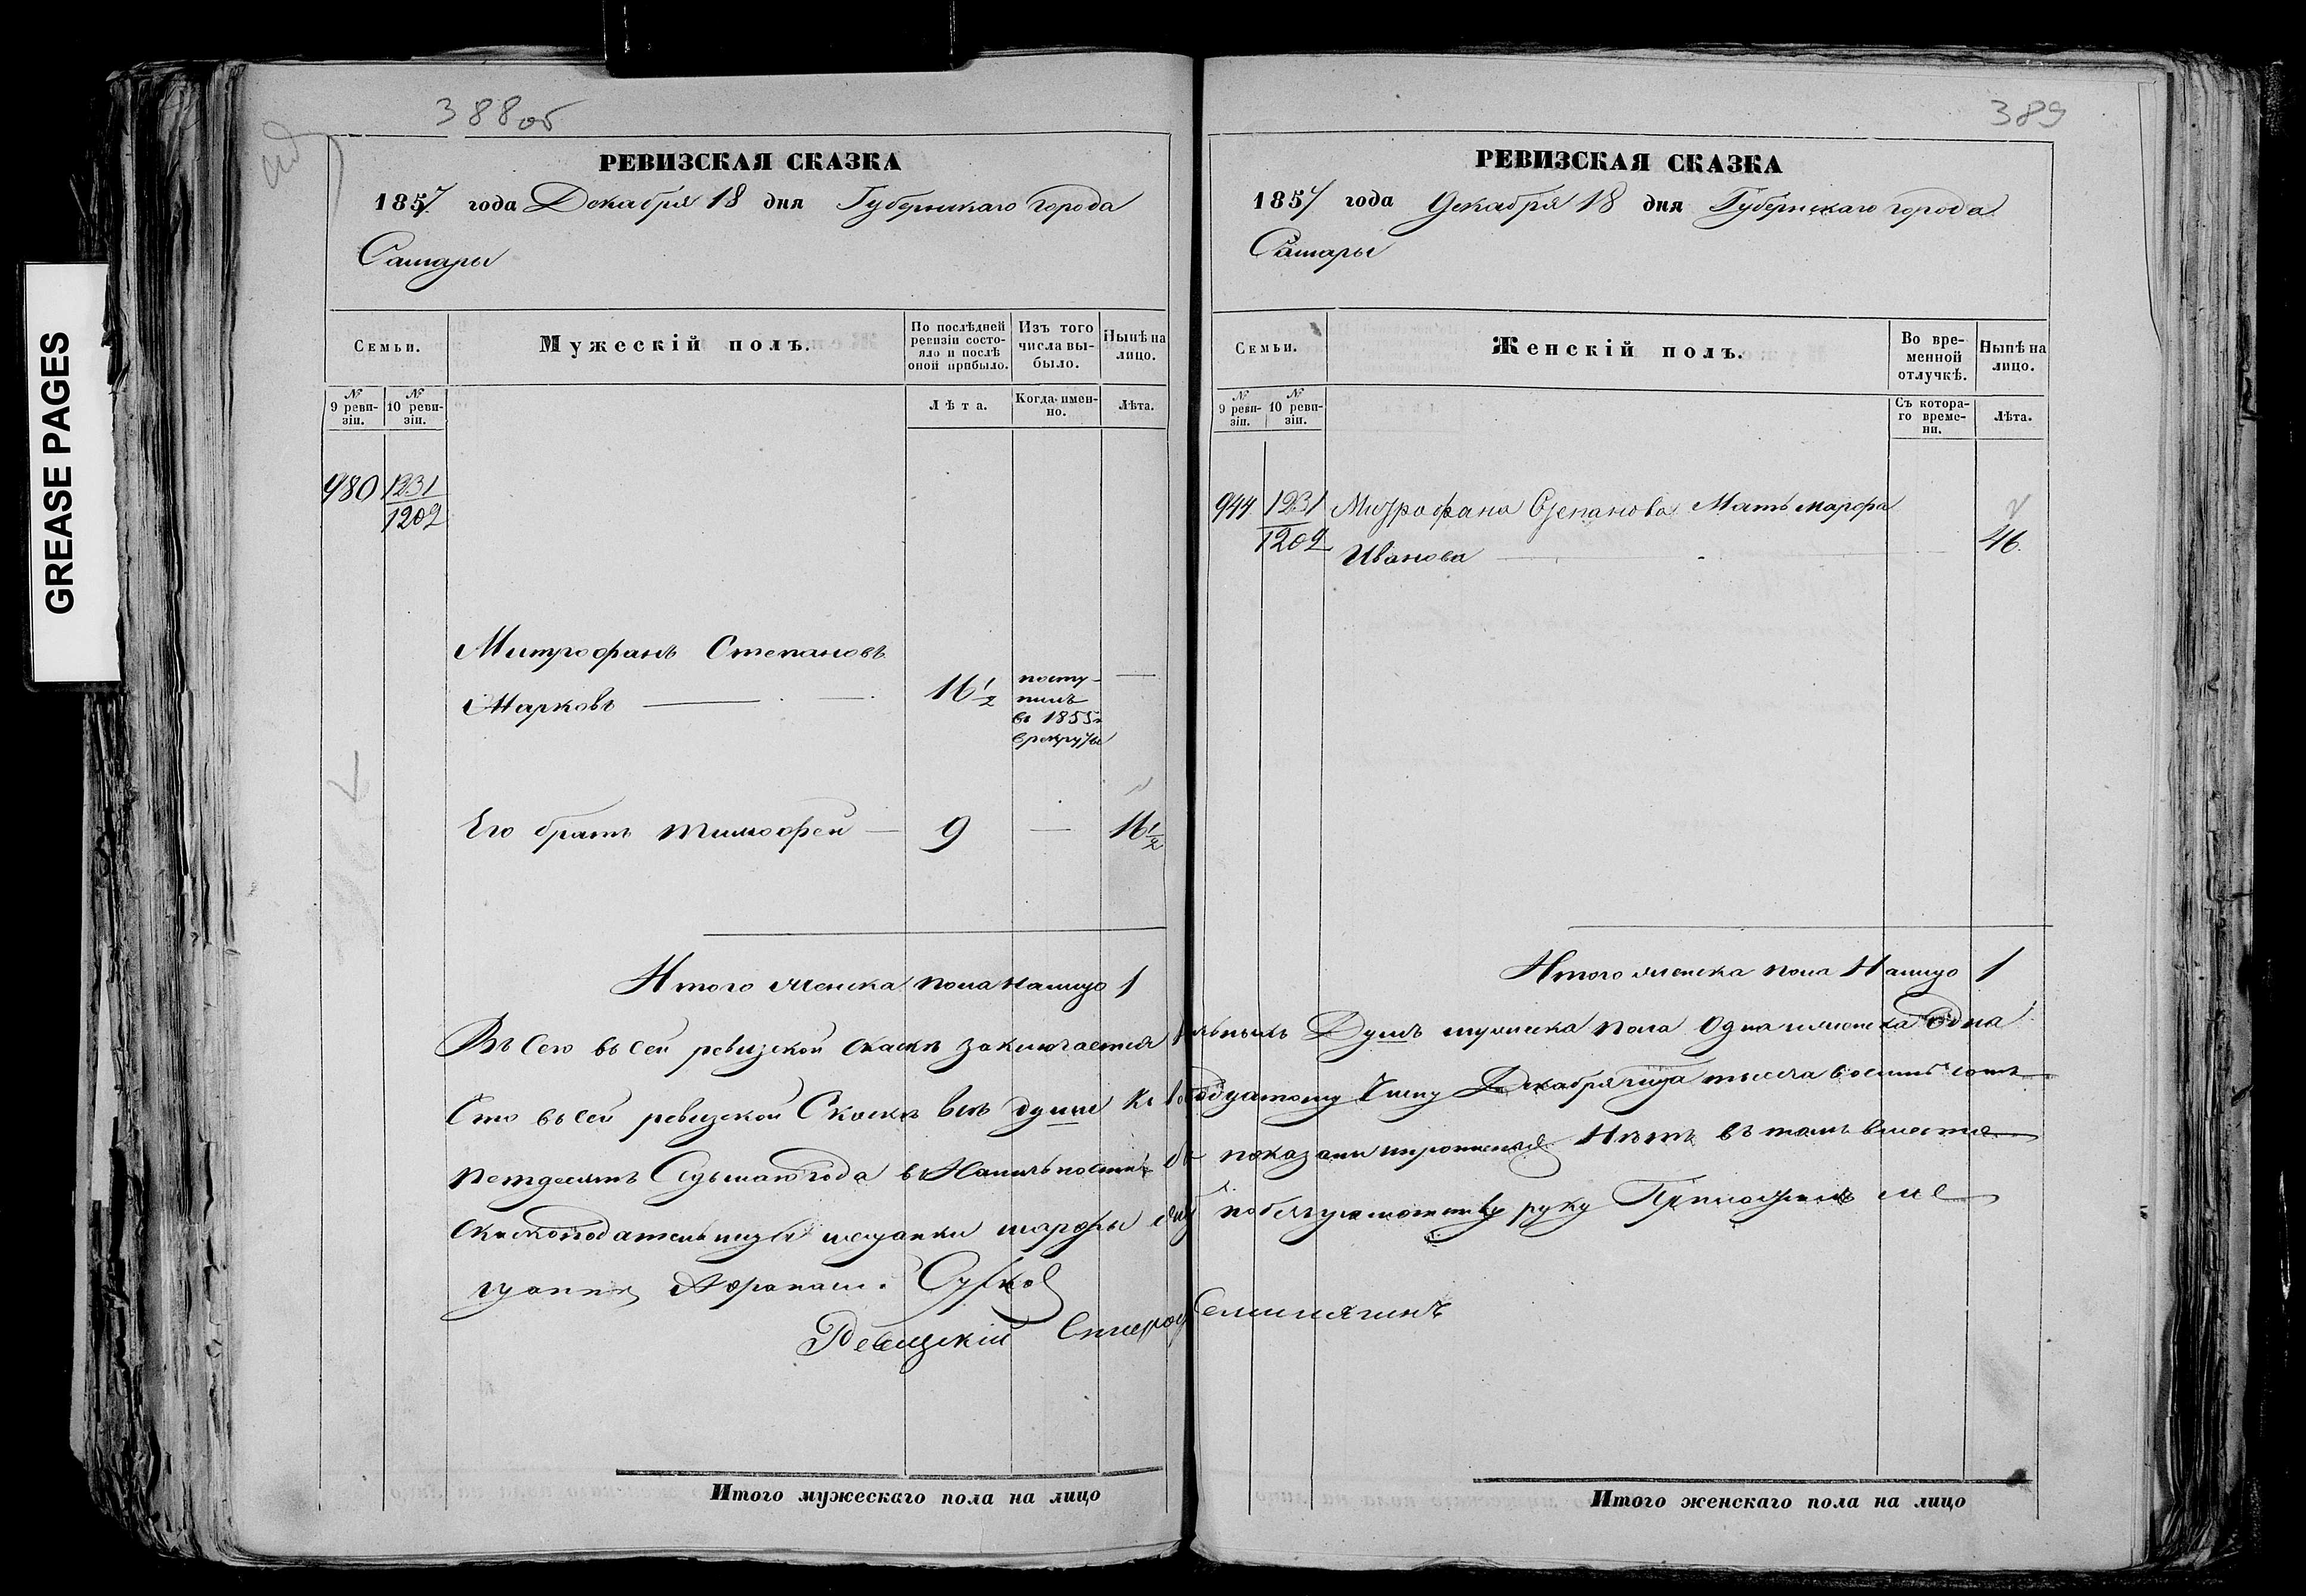 GREASE PAGES
388об
РЕВИЗСКАЯ СКАЗКА
1857 года Декабря 18 дня Губернскаго города
Самары
Семьи.
Мужескій полъ.
По послѣдней ревизіи состояло и послѣ оной прибыло.
Изъ того числа выбыло.
Нынѣ на лицо.
№ 9 ревизіи.
№ 10 ревизіи.
Лѣта.
Когда именно.
Лѣта.
980 1231
1202
Митрофанъ Степановъ
Марковъ — 16 1/2 поступилъ в 1855 г в рекруты —
Его братъ Тимофей — 9 — 16 1/2
Итого муженска пола налицо 1
389
РЕВИЗСКАЯ СКАЗКА
1857 года Декабря 18 дня Губернскаго города
Самары
Семьи.
Женскій полъ.
Во временной отлучкѣ.
Нынѣ на лицо.
№ 9 ревизіи.
№ 10 ревизіи.
Съ котораго времени.
Лѣта.
944 1231 Митрофана Степанова Мать Марфа
1202 Иванова — 46
Итого женска пола Налицо 1
Въ Сего въ сей ревизской сказкѣ заключается Душъ мужеска пола одна женска одна
Что въ сей ревизской Сказкѣ всѣ души Декабря тысяча восемь сотъ
петдесятъ Седьмаго года в показаны Нѣтъ въ томъ вместо
Сказкоподательницы мещанки Марфы руку Приложилъ ме
щанин Сурков
Ревизскій
Итого мужескаго пола на лицо
Итого женскаго пола на лицо